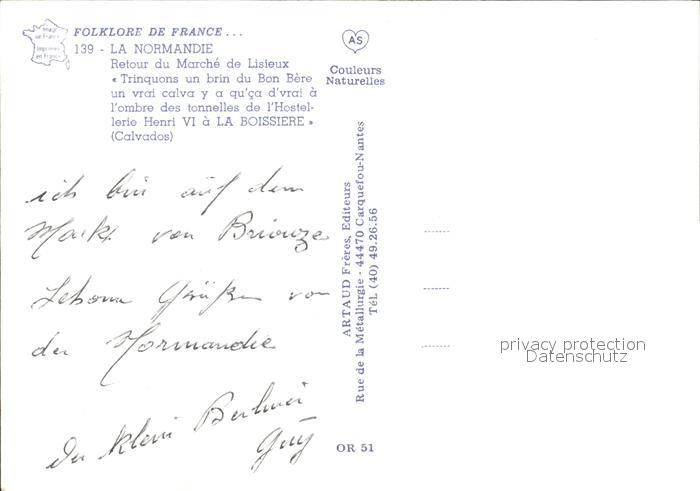 Image
de France
Imprimée
en France
FOLKLORE DE FRANCE...
139 - LA NORMANDIE
Retour du Marché de Lisieux
« Trinquons un brin du Bon Bère
un vrai calva y a qu'ça d'vrai à
l'ombre des tonnelles de l'Hostel-
lerie Henri VI à LA BOISSIERE »
(Calvados)
AS
Couleurs
Naturelles
ich bin auf dem
Markt von Briouze
Grüße von
der Normandie
der klein Berliner
Guy
ARTAUD Frères, Editeurs
Rue de la Métallurgie - 44470 Carquefou-Nantes
Tél. (40) 49.26.56
OR 51
privacy protection
Datenschutz